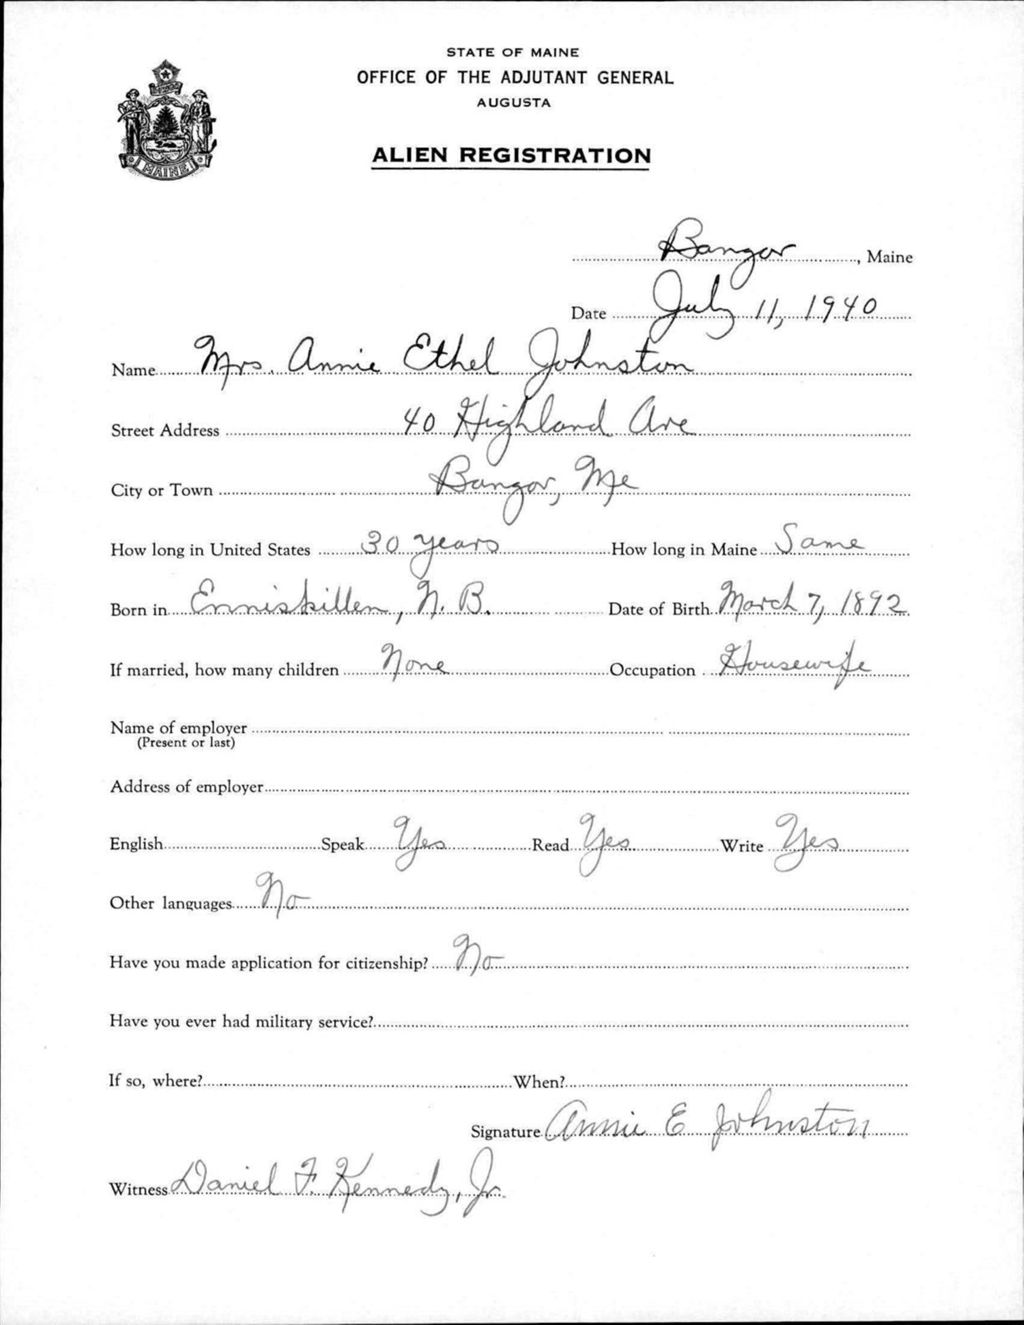 STATE OF MAINE
OFFICE OF THE ADJUTANT GENERAL
AUGUSTA
ALIEN REGISTRATION
MAINE
Bangor, Maine
Date July 11, 1940
Name Mrs. Annie Ethel Johnston
Street Address 40 Highland Ave
City or Town Bangor, Me
How long in United States 30 years How long in Maine Same
Born in Enniskillen, N. B. Date of Birth March 7, 1892
If married, how many children None Occupation Housewife
Name of employer
(Present or last)
Address of employer
English Speak Yes Read Yes Write Yes
Other languages No
Have you made application for citizenship? No
Have you ever had military service?
If so, where? When?
Signature Annie E Johnston
Witness Daniel F. Kennedy, Jr.